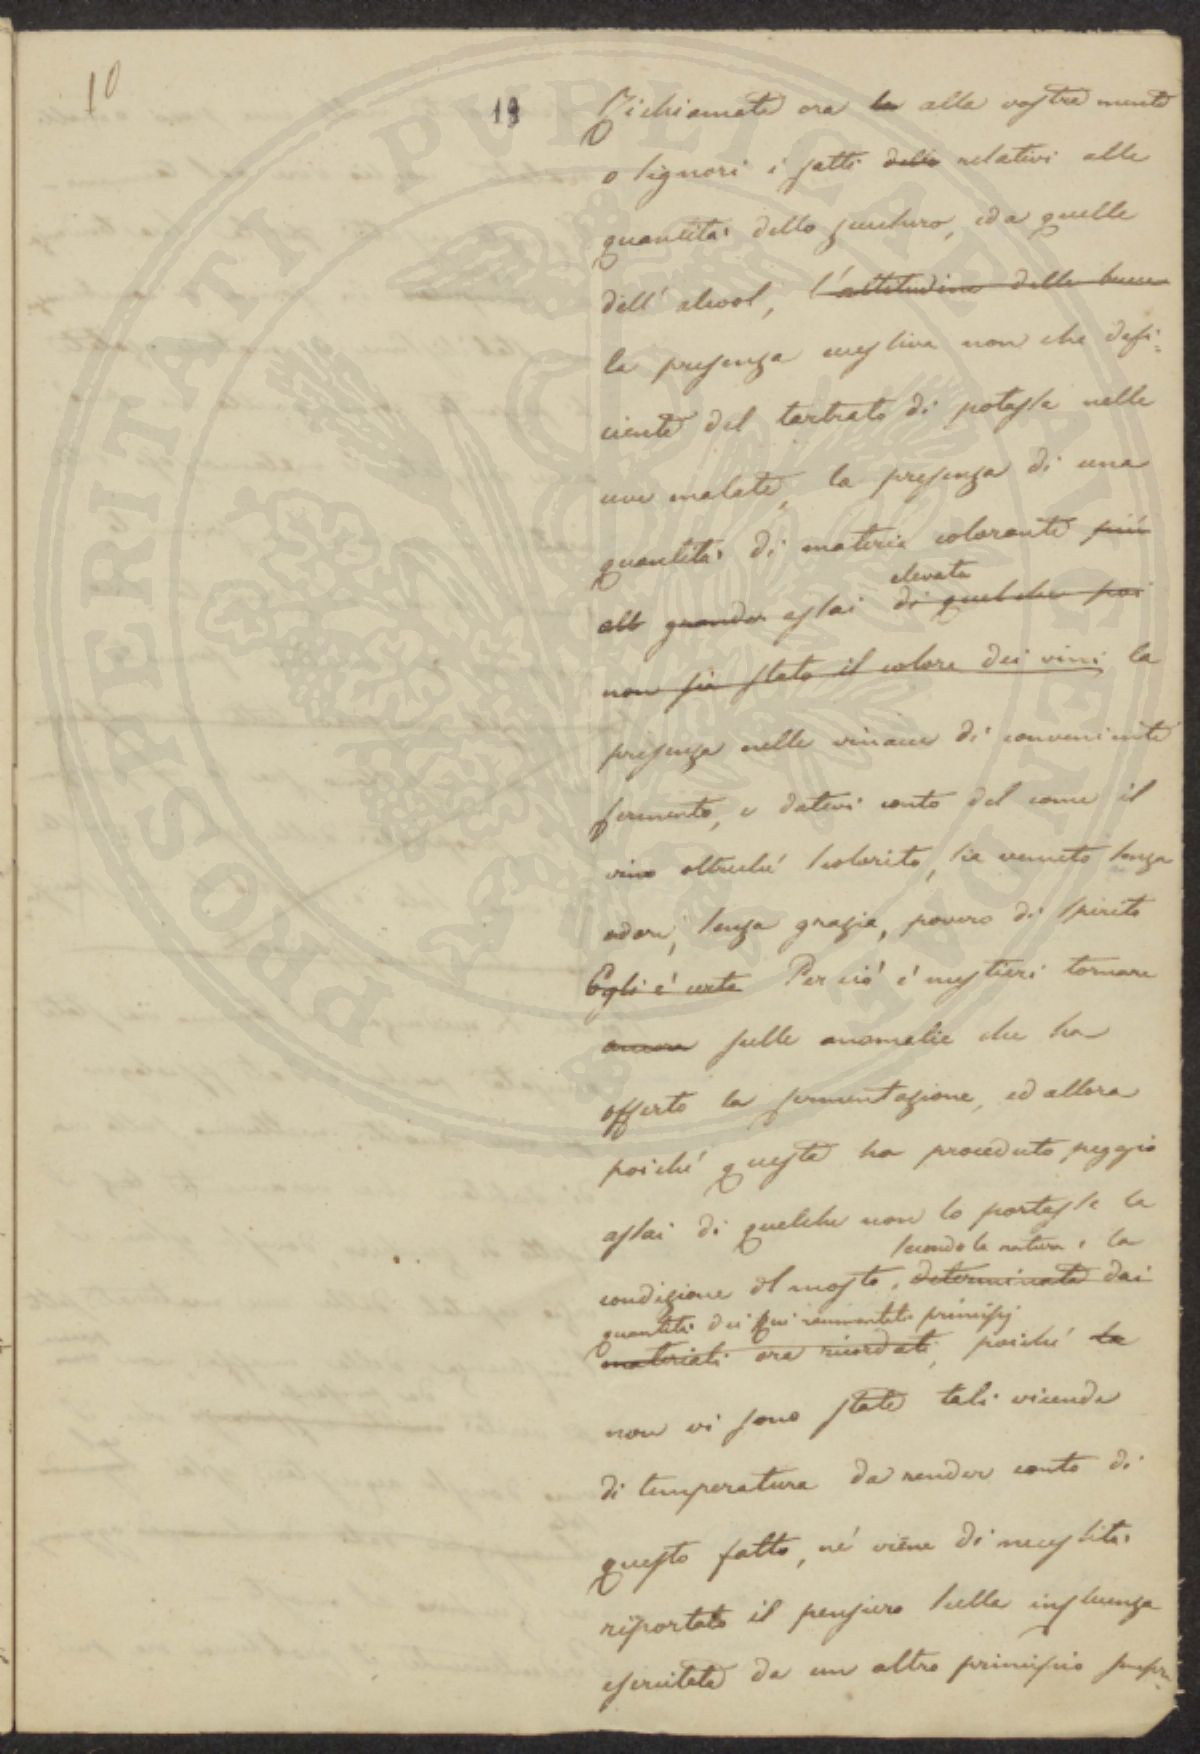 10
19
Richiamate ora la alla vostra mente
o signori i fatti della relativi alle
quantità dello zucchero, ed a quelle
dell'alcool, l'attitudine delle bucce
la presenza nestiva non che defi-
ciente del tartrato di potassa nelle
uve malate, la presenza di una
quantità di materia colorante più
alt grande assai elevata di quelche poi
non sia stato il colore dei vini la
presenza nelle vinacce di conveniente
fermento, e datevi conto del come il
vino oltreché scolorito, sia venuto senza
odore, senza grazia, povero di spirito
Egli è certo Per ciò è mestieri tornare
ancora sulle anomalie che ha
offerto la fermentazione, ed allora
poiché questa ha proceduto peggio
assai di quelche non lo portasse la
secondo la natura e la
condizione del mosto, determinata dai
quantità dei qui rammentati principj
materiali ora ricordati, poiché la
non vi sono state tali vicende
di temperatura da render conto di
questo fatto, né viene di necessità
riportato il pensiero sulla influenza
esercitata da un altro principio